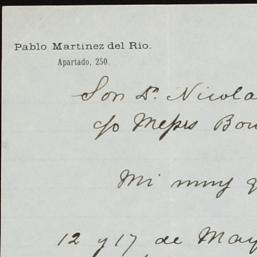 Pablo Martinez del Rio.
Apartado, 250.
Son Dn. Nicola
c/o Messrs Bow
Mi muy q
12 y 17 de May